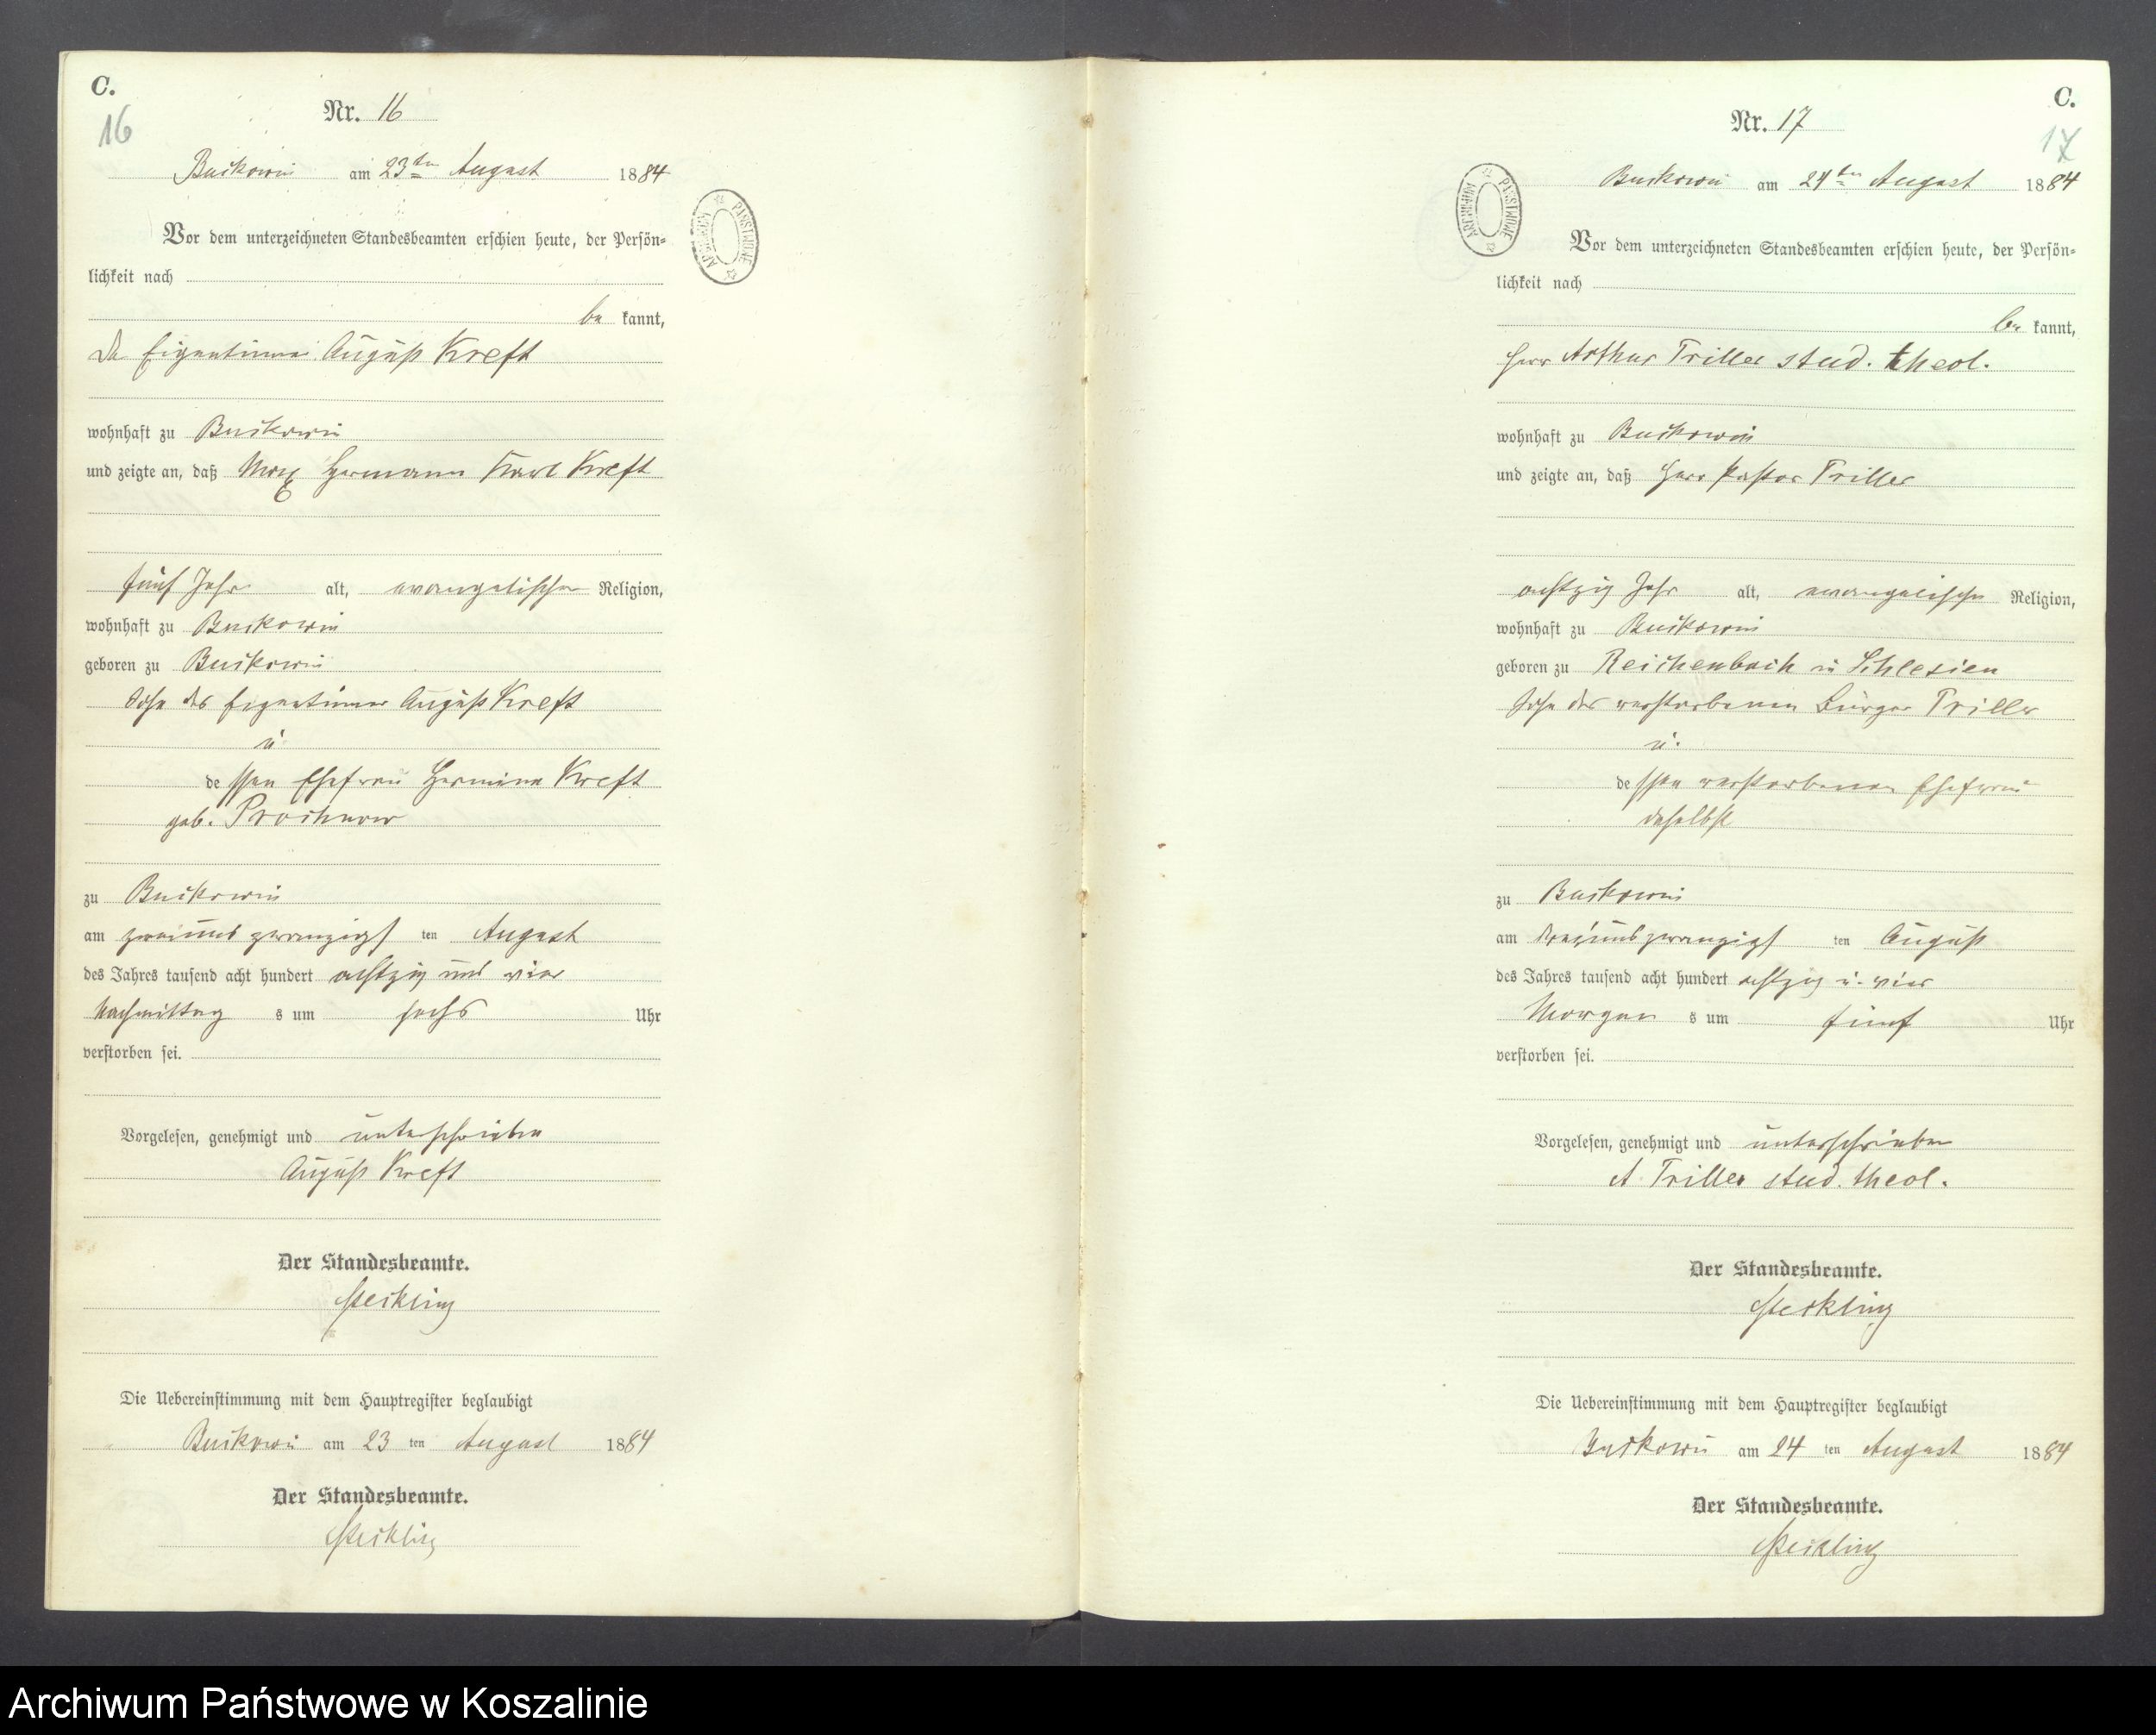 C.
16
Nr. 16
Buckowin am 23ten August 1884
Vor dem unterzeichneten Standesbeamten erschien heute, der Persön-
lichkeit nach
be kannt,
Der Eigentümer August Kreft
wohnhaft zu Buckowin
und zeigte an, daß Max Hermann Karl Kreft
fünf Jahr alt, evangelischer Religion,
wohnhaft zu Buckowin
geboren zu Buckowin
Sohn des Eigentümer August Kreft
u
de ssen Ehefrau Hermine Kreft
geb. Prochnow
zu Buckowin
am zweiundzwanzigs ten August
des Jahres tausend acht hundert achtzig und vier
Nachmittag s um sechs Uhr
verstorben sei.
Vorgelesen, genehmigt und unterschrieben
August Kreft
Der Standesbeamte.
Steckling
Die Uebereinstimmung mit dem Hauptregister beglaubigt
Buckowin am 23 ten August 1884
Der Standesbeamte.
Steckling
ARCHIWUM PAŃSTWOWE
C.
17
Nr. 17
Buckowin am 24ten August 1884
ARCHIWUM PAŃSTWOWE
Vor dem unterzeichneten Standesbeamten erschien heute, der Persön-
lichkeit nach
be kannt,
Herr Arthur Triller stud. theol.
wohnhaft zu Buckowin
und zeigte an, daß Herr Pastor Triller
achtzig Jahr alt, evangelischer Religion,
wohnhaft zu Buckowin
geboren zu Reichenbach in Schlesien
Sohn des verstorbenen Bürger Triller
u.
de ssen verstorbenen Ehefrau
daselbst
zu Buckowin
am dreiundzwanzigs ten August
des Jahres tausend acht hundert achtzig u. vier
Morgen s um fünf Uhr
verstorben sei.
Vorgelesen, genehmigt und unterschrieben
A Triller stud. theol.
Der Standesbeamte.
Steckling
Die Uebereinstimmung mit dem Hauptregister beglaubigt
Buckowin am 24 ten August 1884
Der Standesbeamte.
Steckling
Archiwum Państwowe w Koszalinie